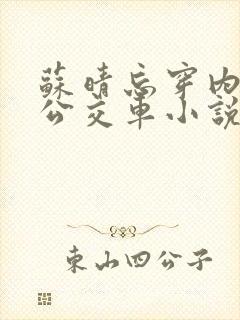 蘇晴忘穿内
公交車小説
東山四公子